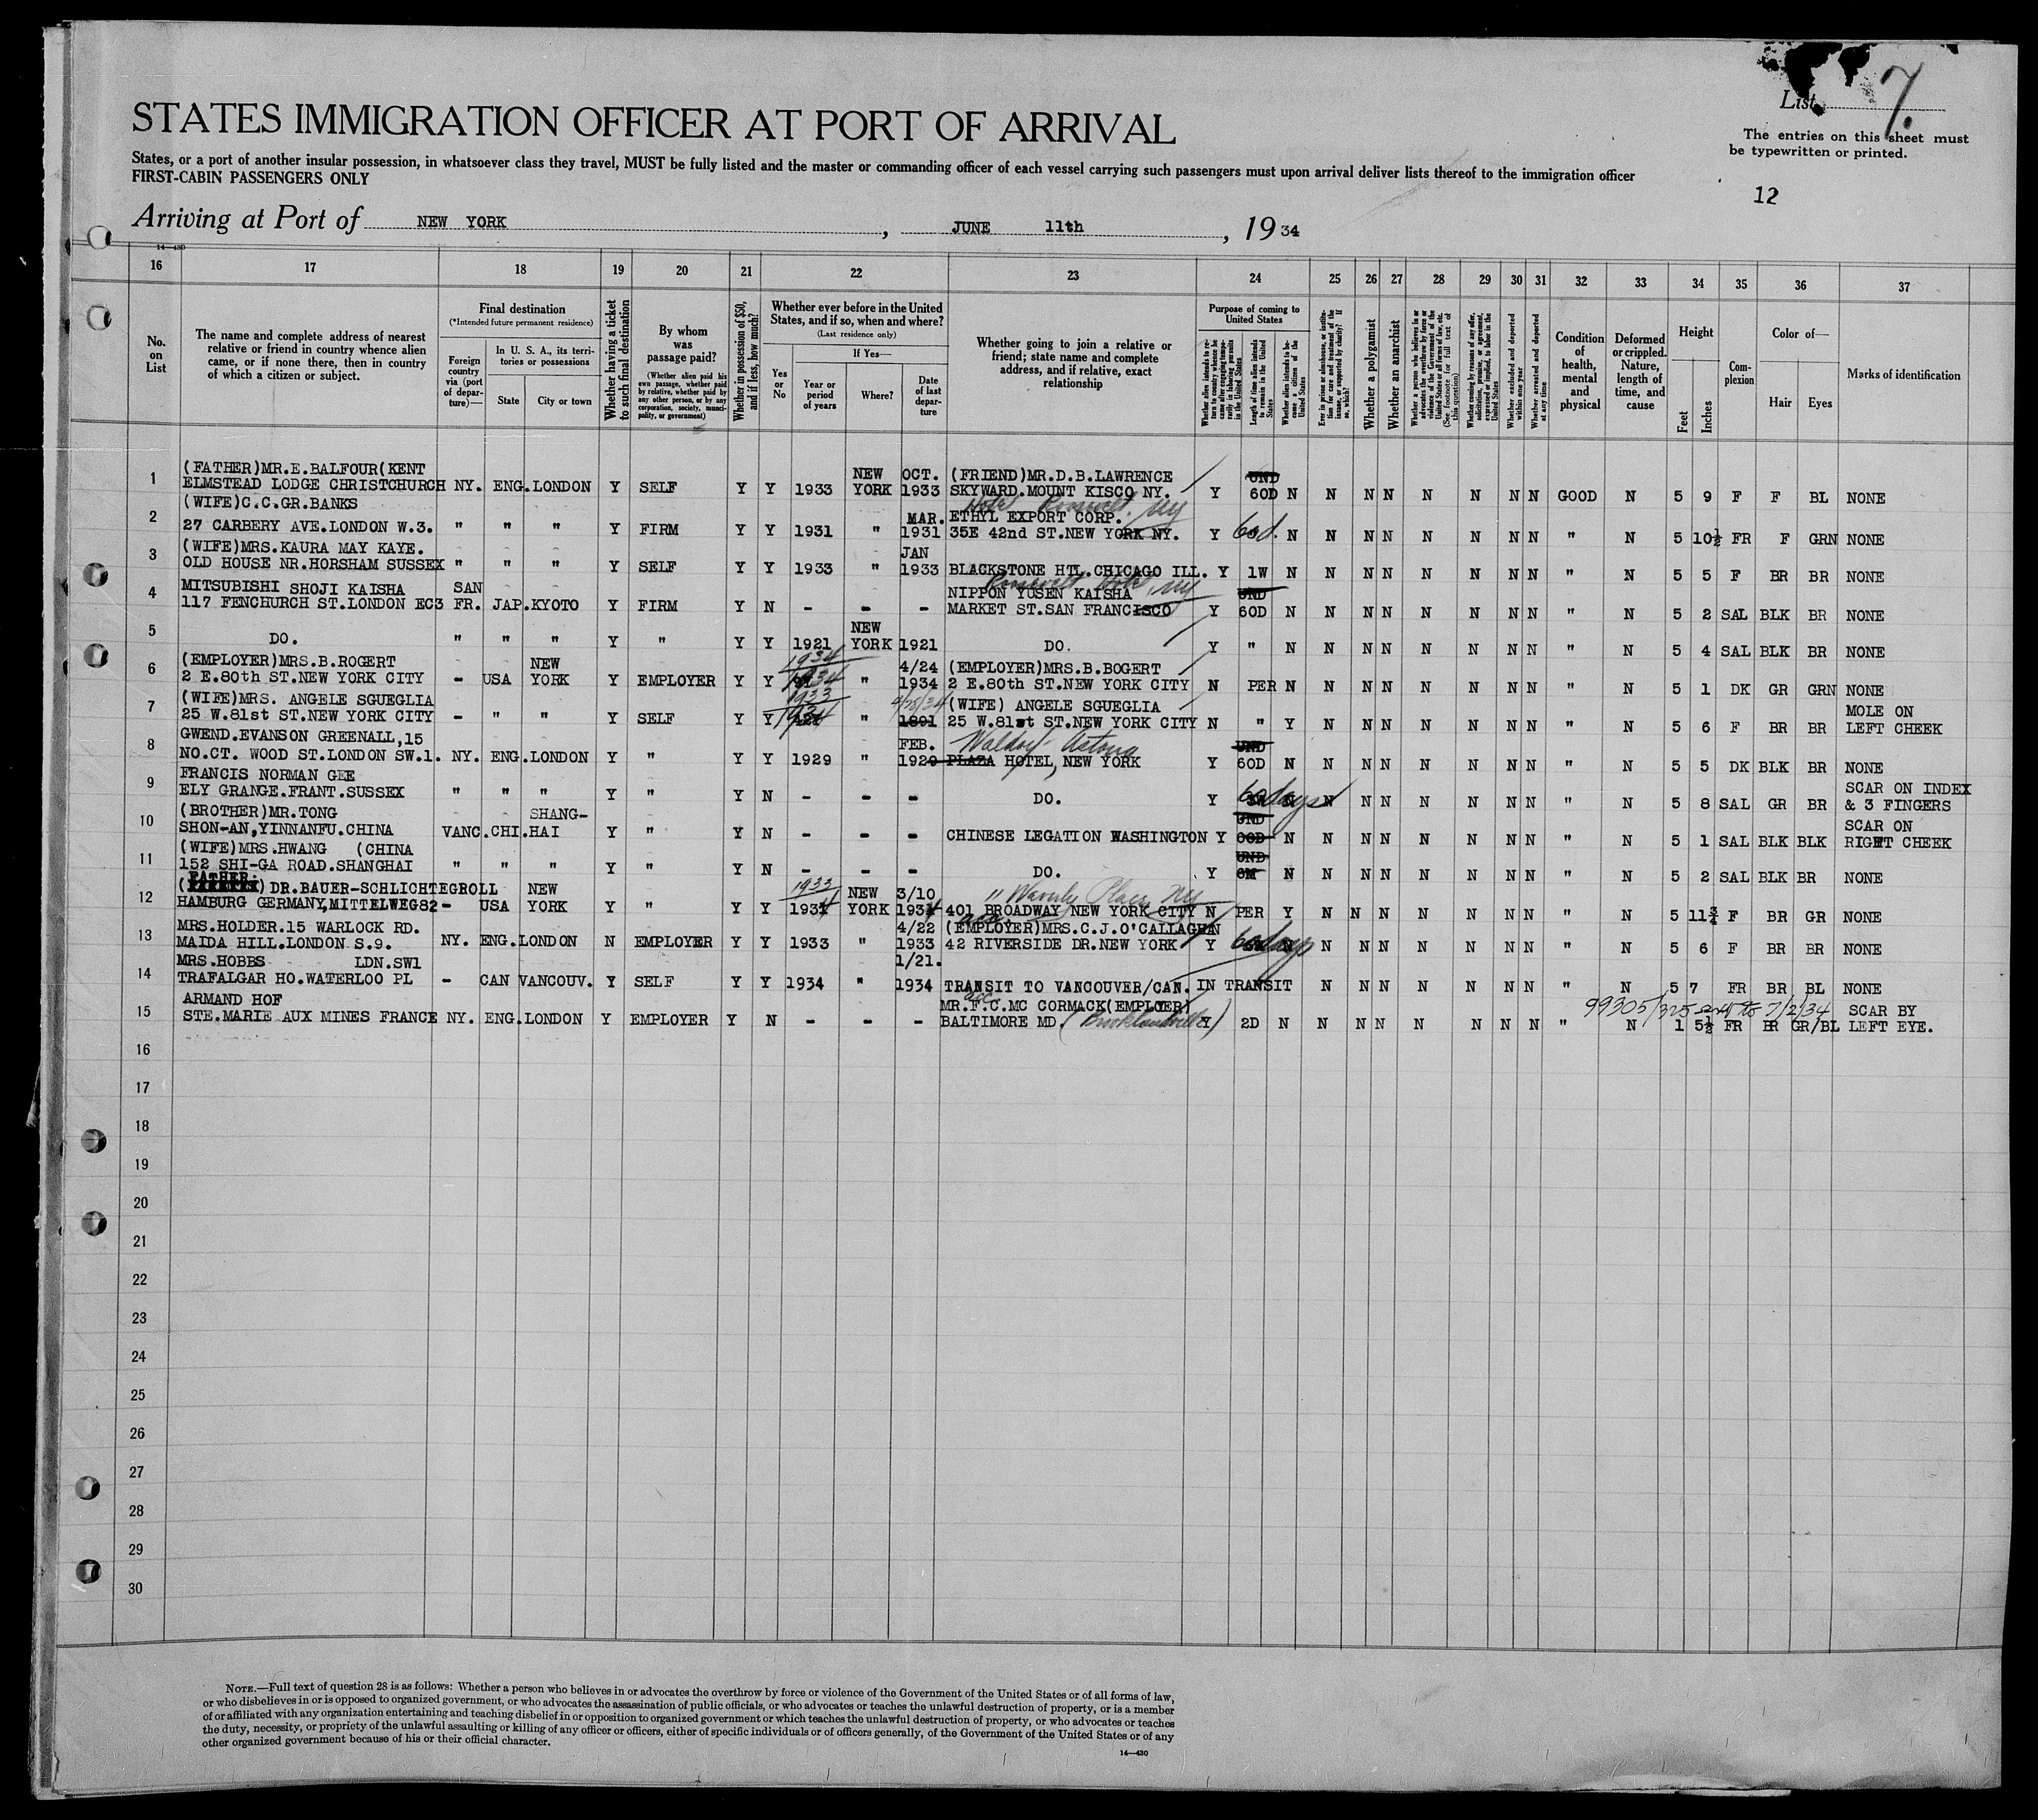 List 7.
The entries on this sheet must
be typewritten or printed.
STATES IMMIGRATION OFFICER AT PORT OF ARRIVAL
States, or a port of another insular possession, in whatsoever class they travel, MUST be fully listed and the master or commanding officer of each vessel carrying such passengers must upon arrival deliver lists thereof to the immigration officer
FIRST-CABIN PASSENGERS ONLY
12
Arriving at Port of NEW YORK , JUNE 11th , 19 34
14—430
16 17 18 19 20 21 22 23 24 25 26 27 28 29 30 31 32 33 34 35 36 37
No. on List
The name and complete address of nearest relative or friend in country whence alien came, or if none there, then in country of which a citizen or subject.
Final destination
(*Intended future permanent residence)
Foreign country via (port of departure)—
In U. S. A., its territories or possessions
State City or town
Whether having a ticket to such final destination
By whom was passage paid?
(Whether alien paid his own passage, whether paid by relative, whether paid by any other person, or by any corporation, society, municipality, or government)
Whether in possession of $50, and if less, how much?
Whether ever before in the United States, and if so, when and where?
(Last residence only)
Yes or No
If Yes—
Year or period of years
Where?
Date of last departure
Whether going to join a relative or friend; state name and complete address, and if relative, exact relationship
Purpose of coming to United States
Length of time alien intends to remain in the United States
Whether alien intends to become a citizen of the United States
Whether a polygamist
Whether an anarchist
Whether excluded and deported within one year
Whether arrested and deported at any time
Condition of health, mental and physical
Deformed or crippled. Nature, length of time, and cause
Height
Feet Inches
Complexion
Color of—
Hair Eyes
Marks of identification
1 (FATHER)MR.E.BALFOUR(KENT NEW OCT. (FRIEND)MR.D.B.LAWRENCE UND
ELMSTEAD LODGE CHRISTCHURCH NY. ENG.LONDON Y SELF Y Y 1933 YORK 1933 SKYWARD.MOUNT KISCO NY. Y 60D N N N N N N N N GOOD N 5 9 F F BL NONE
2 (WIFE)C.C.GR.BANKS Hotel Roosevelt, NY
MAR. ETHYL EXPORT CORP.
27 CARBERY AVE.LONDON W.3. " " " Y FIRM Y Y 1931 " 1931 35E 42nd ST.NEW YORK NY. Y 60d. N N N N N N N N " N 5 10½ FR F GRN NONE
3 (WIFE)MRS.KAURA MAY KAYE. JAN
OLD HOUSE NR.HORSHAM SUSSEX " " " Y SELF Y Y 1933 " 1933 BLACKSTONE HTL.CHICAGO ILL. Y 1W N N N N N N N N " N 5 5 F BR BR NONE
Roosevelt Hotel, NY
4 MITSUBISHI SHOJI KAISHA SAN NIPPON YUSEN KAISHA UND
117 FENCHURCH ST.LONDON EC3 FR. JAP.KYOTO Y FIRM Y N - - - MARKET ST.SAN FRANCISCO Y 60D N N N N N N N N " N 5 2 SAL BLK BR NONE
5 NEW
DO. " " " Y " Y Y 1921 YORK 1921 DO. Y " N N N N N N N N " N 5 4 SAL BLK BR NONE
6 (EMPLOYER)MRS.B.ROGERT NEW 1934 4/24 (EMPLOYER)MRS.B.BOGERT
2 E.80th ST.NEW YORK CITY - USA YORK Y EMPLOYER Y Y 1934 " 1934 2 E.80th ST.NEW YORK CITY N PER N N N N N N N N " N 5 1 DK GR GRN NONE
7 (WIFE)MRS. ANGELE SGUEGLIA 1933 4/28/34 (WIFE) ANGELE SGUEGLIA MOLE ON
25 W.81st ST.NEW YORK CITY - " " Y SELF Y Y 1934 " 1891 25 W.81st ST.NEW YORK CITY N " Y N N N N N N N " N 5 6 F BR BR LEFT CHEEK
8 GWEND.EVANSON GREENALL,15 FEB. Waldorf Astoria UND
NO.CT. WOOD ST.LONDON SW.1. NY. ENG.LONDON Y " Y Y 1929 " 1929 PLAZA HOTEL, NEW YORK Y 60D N N N N N N N N " N 5 5 DK BLK BR NONE
9 FRANCIS NORMAN GEE SCAR ON INDEX
ELY GRANGE.FRANT.SUSSEX " " " Y " Y N - - - DO. Y 60days N N N N N N N " N 5 8 SAL GR BR & 3 FINGERS
10 (BROTHER)MR.TONG SHANG- UND SCAR ON
SHON-AN,YINNANFU.CHINA VANC.CHI.HAI Y " Y N - - - CHINESE LEGATION WASHINGTON Y 60D N N N N N N N N " N 5 1 SAL BLK BLK RIGHT CHEEK
11 (WIFE)MRS.HWANG (CHINA UND
152 SHI-GA ROAD.SHANGHAI " " " Y " Y N - - - DO. Y 6M N N N N N N N N " N 5 2 SAL BLK BR NONE
12 FATHER.
( ) DR.BAUER-SCHLICHTEGROLL NEW 1933 NEW 3/10 11 Waverly Place, NY
HAMBURG GERMANY,MITTELWEG82 - USA YORK Y " Y Y 1934 YORK 1934 401 BROADWAY NEW YORK CITY N PER Y N N N N N N N " N 5 11¾ F BR GR NONE
13 MRS.HOLDER.15 WARLOCK RD. 4/22 acc. (EMPLOYER)MRS.C.J.O'CALLAGHAN
MAIDA HILL.LONDON S.9. NY. ENG.LONDON N EMPLOYER Y Y 1933 " 1933 42 RIVERSIDE DR.NEW YORK Y 60days N N N N N N N " N 5 6 F BR BR NONE
14 MRS.HOBBS LDN.SW1 1/21.
TRAFALGAR HO.WATERLOO PL - CAN VANCOUV. Y SELF Y Y 1934 " 1934 TRANSIT TO VANCOUVER/CAN. IN TRANSIT N N N N N N N " N 5 7 FR BR BL NONE
15 ARMAND HOF acc. MR.F.C.MC CORMACK(EMPLOYER) 99305/325 7/2/34 SCAR BY
STE.MARIE AUX MINES FRANCE NY. ENG.LONDON Y EMPLOYER Y N - - - BALTIMORE MD. (Brooklandville) Y 2D N N N N N N N N " N 1 5½ FR BR GR/BL LEFT EYE.
16
17
18
19
20
21
22
23
24
25
26
27
28
29
30
NOTE.—Full text of question 28 is as follows: Whether a person who believes in or advocates the overthrow by force or violence of the Government of the United States or of all forms of law,
or who disbelieves in or is opposed to organized government, or who advocates the assassination of public officials, or who advocates or teaches the unlawful destruction of property, or is a member
of or affiliated with any organization entertaining and teaching disbelief in or opposition to organized government or which teaches the unlawful destruction of property, or who advocates or teaches
the duty, necessity, or propriety of the unlawful assaulting or killing of any officer or officers, either of specific individuals or of officers generally, of the Government of the United States or of any
other organized government because of his or their official character.
14—430